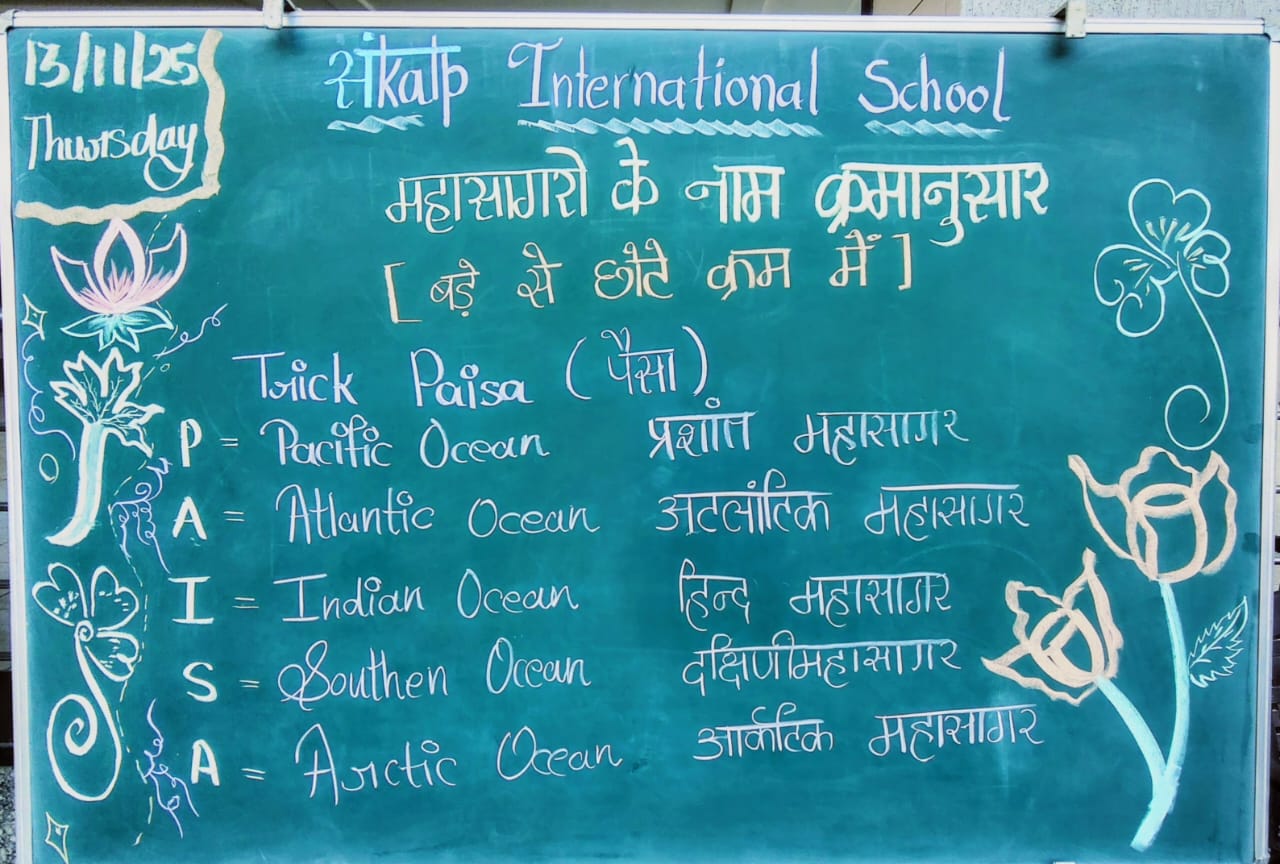 13/11/25
Thursday
संkalp International School
महासागरो के नाम क्रमानुसार
[ बड़े से छोटे क्रम में ]
Trick Paisa (पैसा)
P = Pacific Ocean प्रशांत महासागर
A = Atlantic Ocean अटलांटिक महासागर
I = Indian Ocean हिन्द महासागर
S = Southen Ocean दक्षिणीमहासागर
A = Arctic Ocean आर्कटिक महासागर